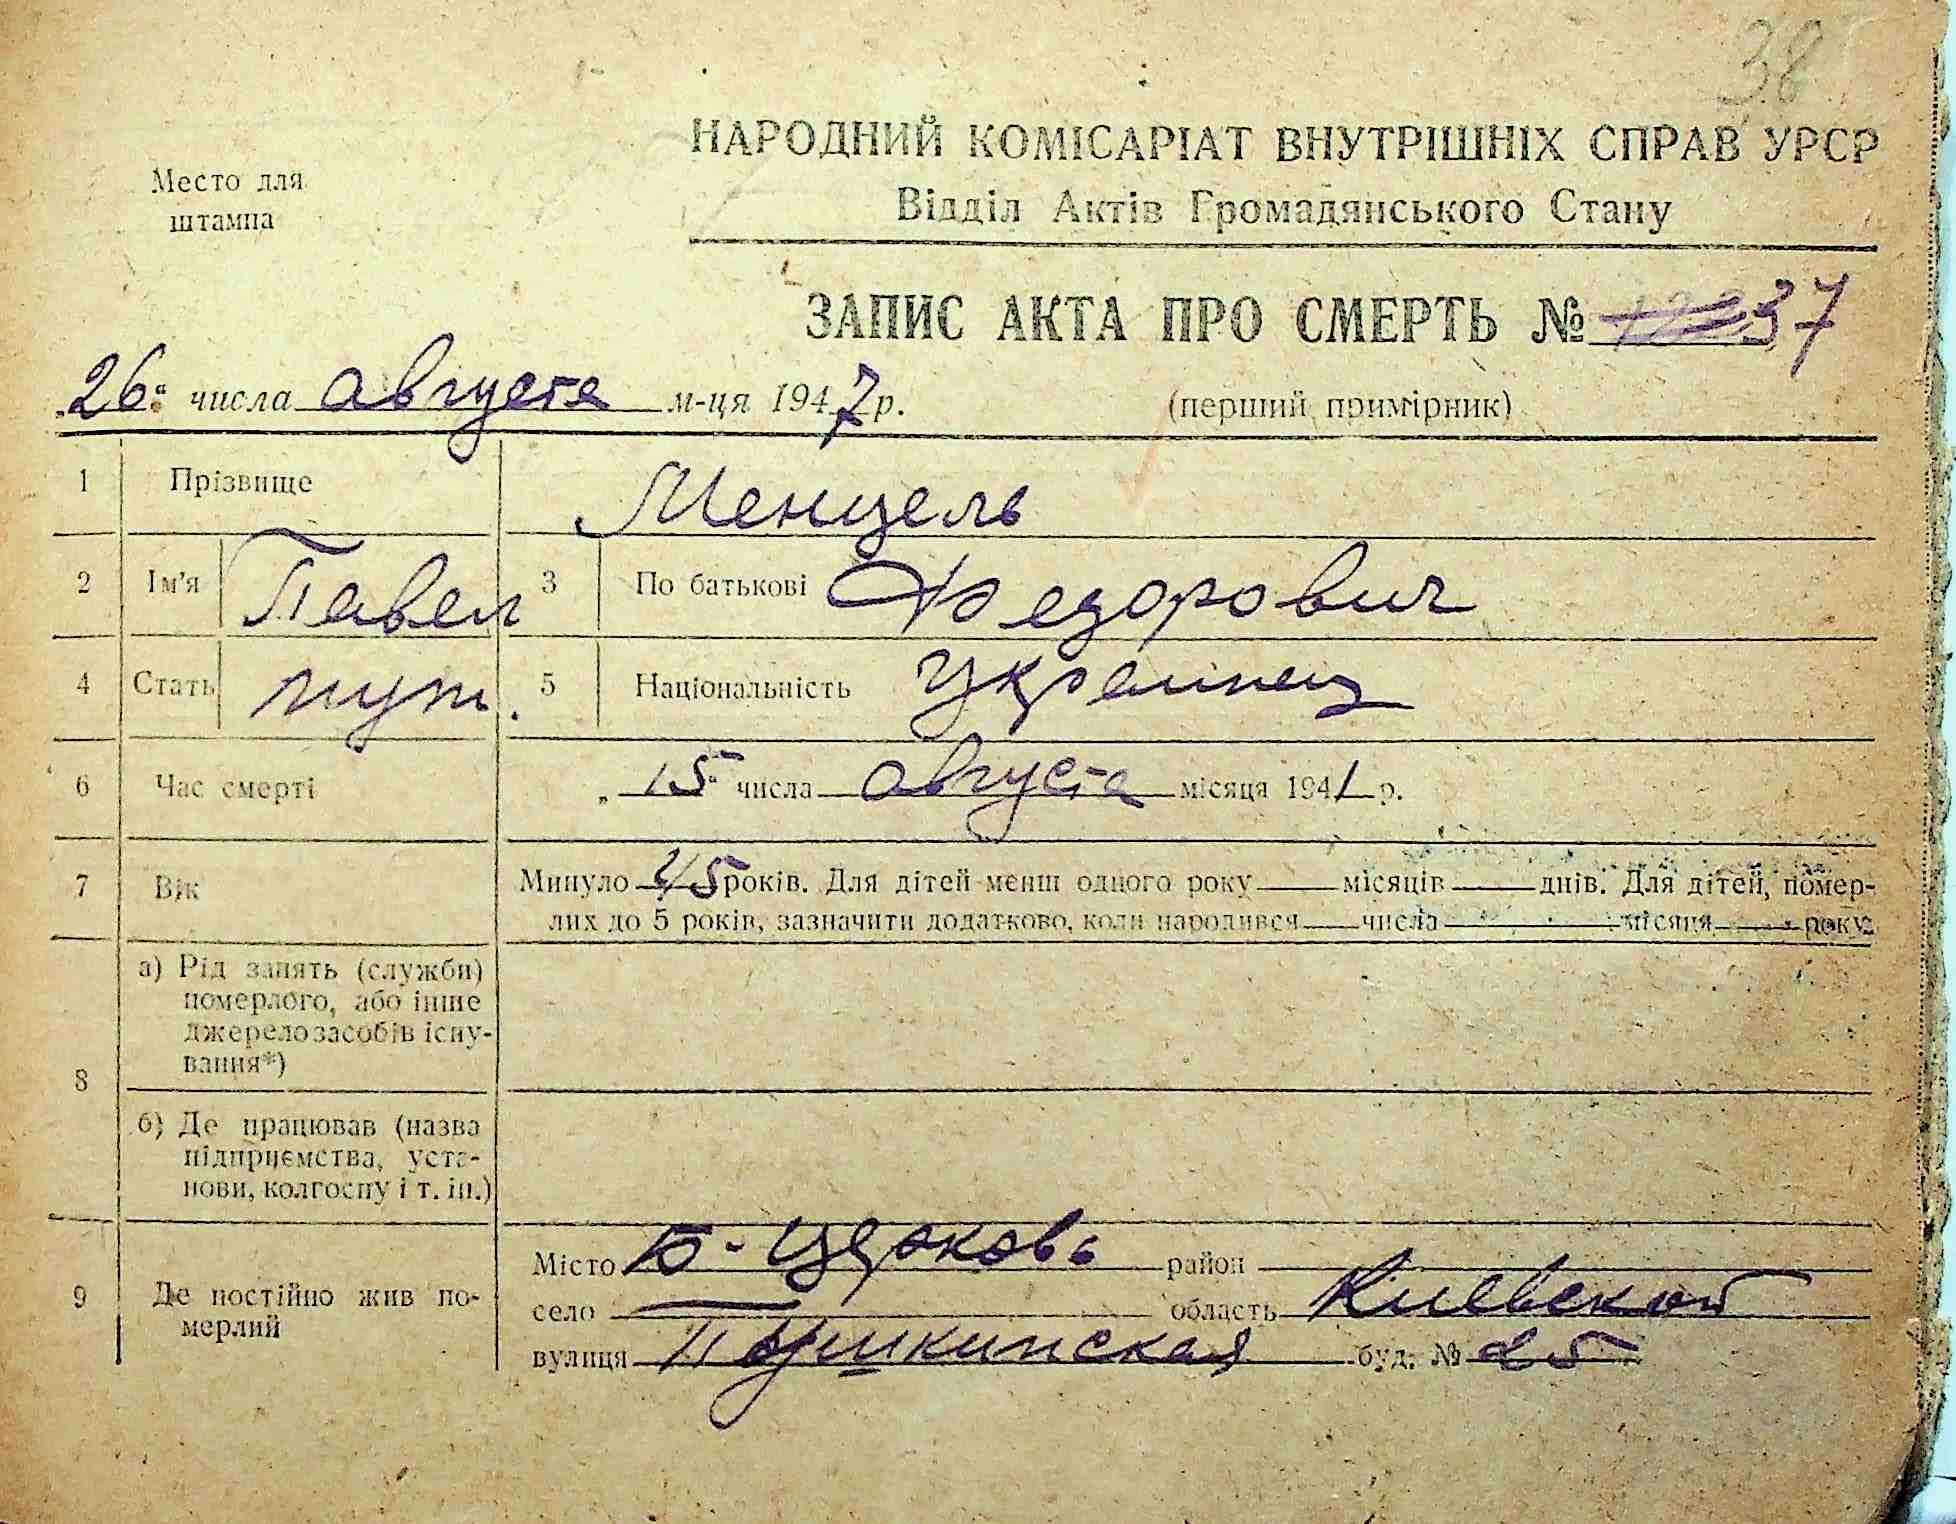 38
НАРОДНИЙ КОМІСАРІАТ ВНУТРІШНІХ СПРАВ УРСР
Место для штампа
Відділ Актів Громадянського Стану
ЗАПИС АКТА ПРО СМЕРТЬ № 37
„26“ числа августа м-ця 1947 р. (перший примірник)
1 Прізвище Менцель
2 Ім'я Павел 3 По батькові Федорович
4 Стать муж. 5 Національність Украинец
6 Час смерті „15“ числа августа місяця 1941 р.
7 Вік Минуло 45 років. Для дітей менш одного року місяців днів. Для дітей, помер-
лих до 5 років, зазначити додатково, коли народився числа місяця року
8 а) Рід занять (служби)
померлого, або інше
джерело засобів існу-
вання*)
б) Де працював (назва
підприємства, уста-
нови, колгоспу і т. ін.)
9 Де постійно жив по-
мерлий
Місто Б-Церковь район
село область Киевской
вулиця Пушкинская буд. № 25